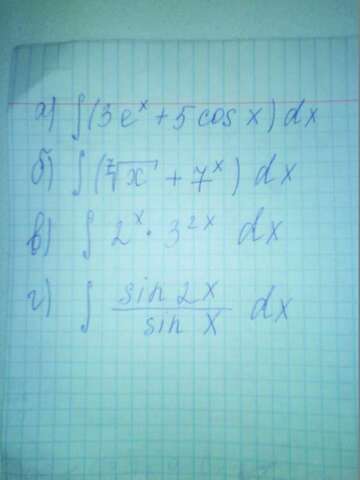 а) ∫(3eˣ + 5 cos x) dx
б) ∫(⁷√x + 7ˣ) dx
в) ∫ 2ˣ · 3²ˣ dx
г) ∫ sin 2x / sin x dx